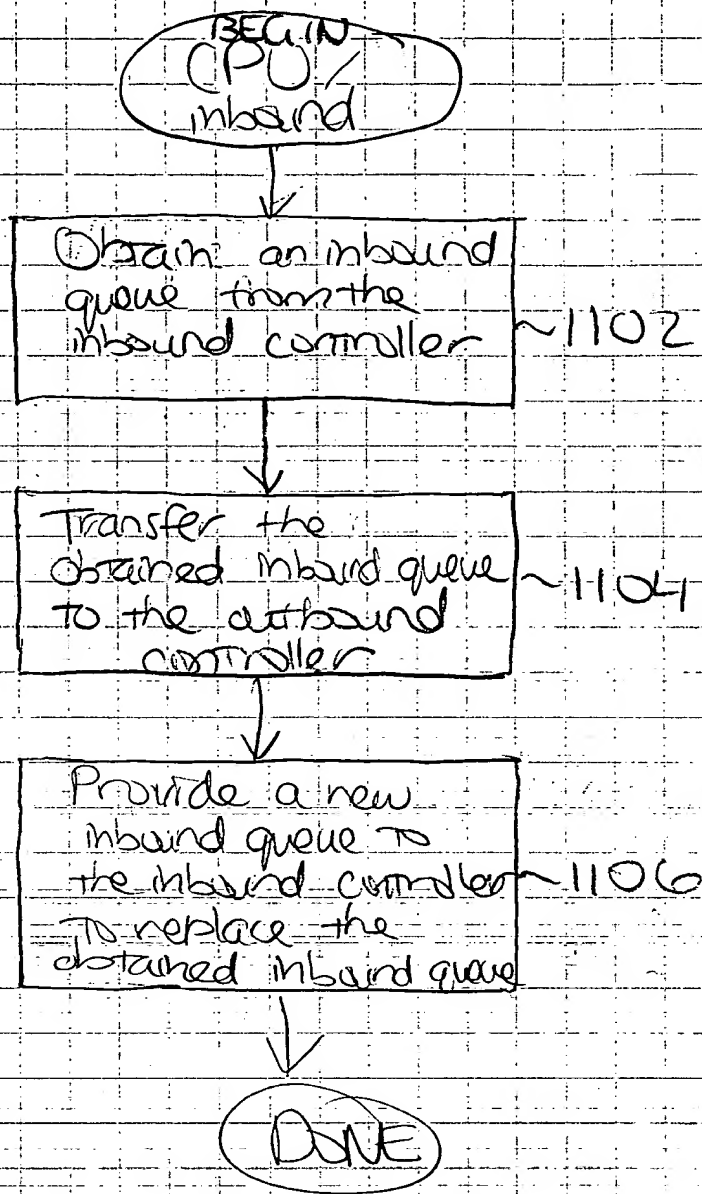 BEGIN
CPU/
inbound
Obtain an inbound
queue from the
inbound controller
~1102
Transfer the
obtained inbound queue
~1104
to the outbound
controller
Provide a new
inbound queue to
the inbound controller
~1106
to replace the
obtained inbound queue
DONE